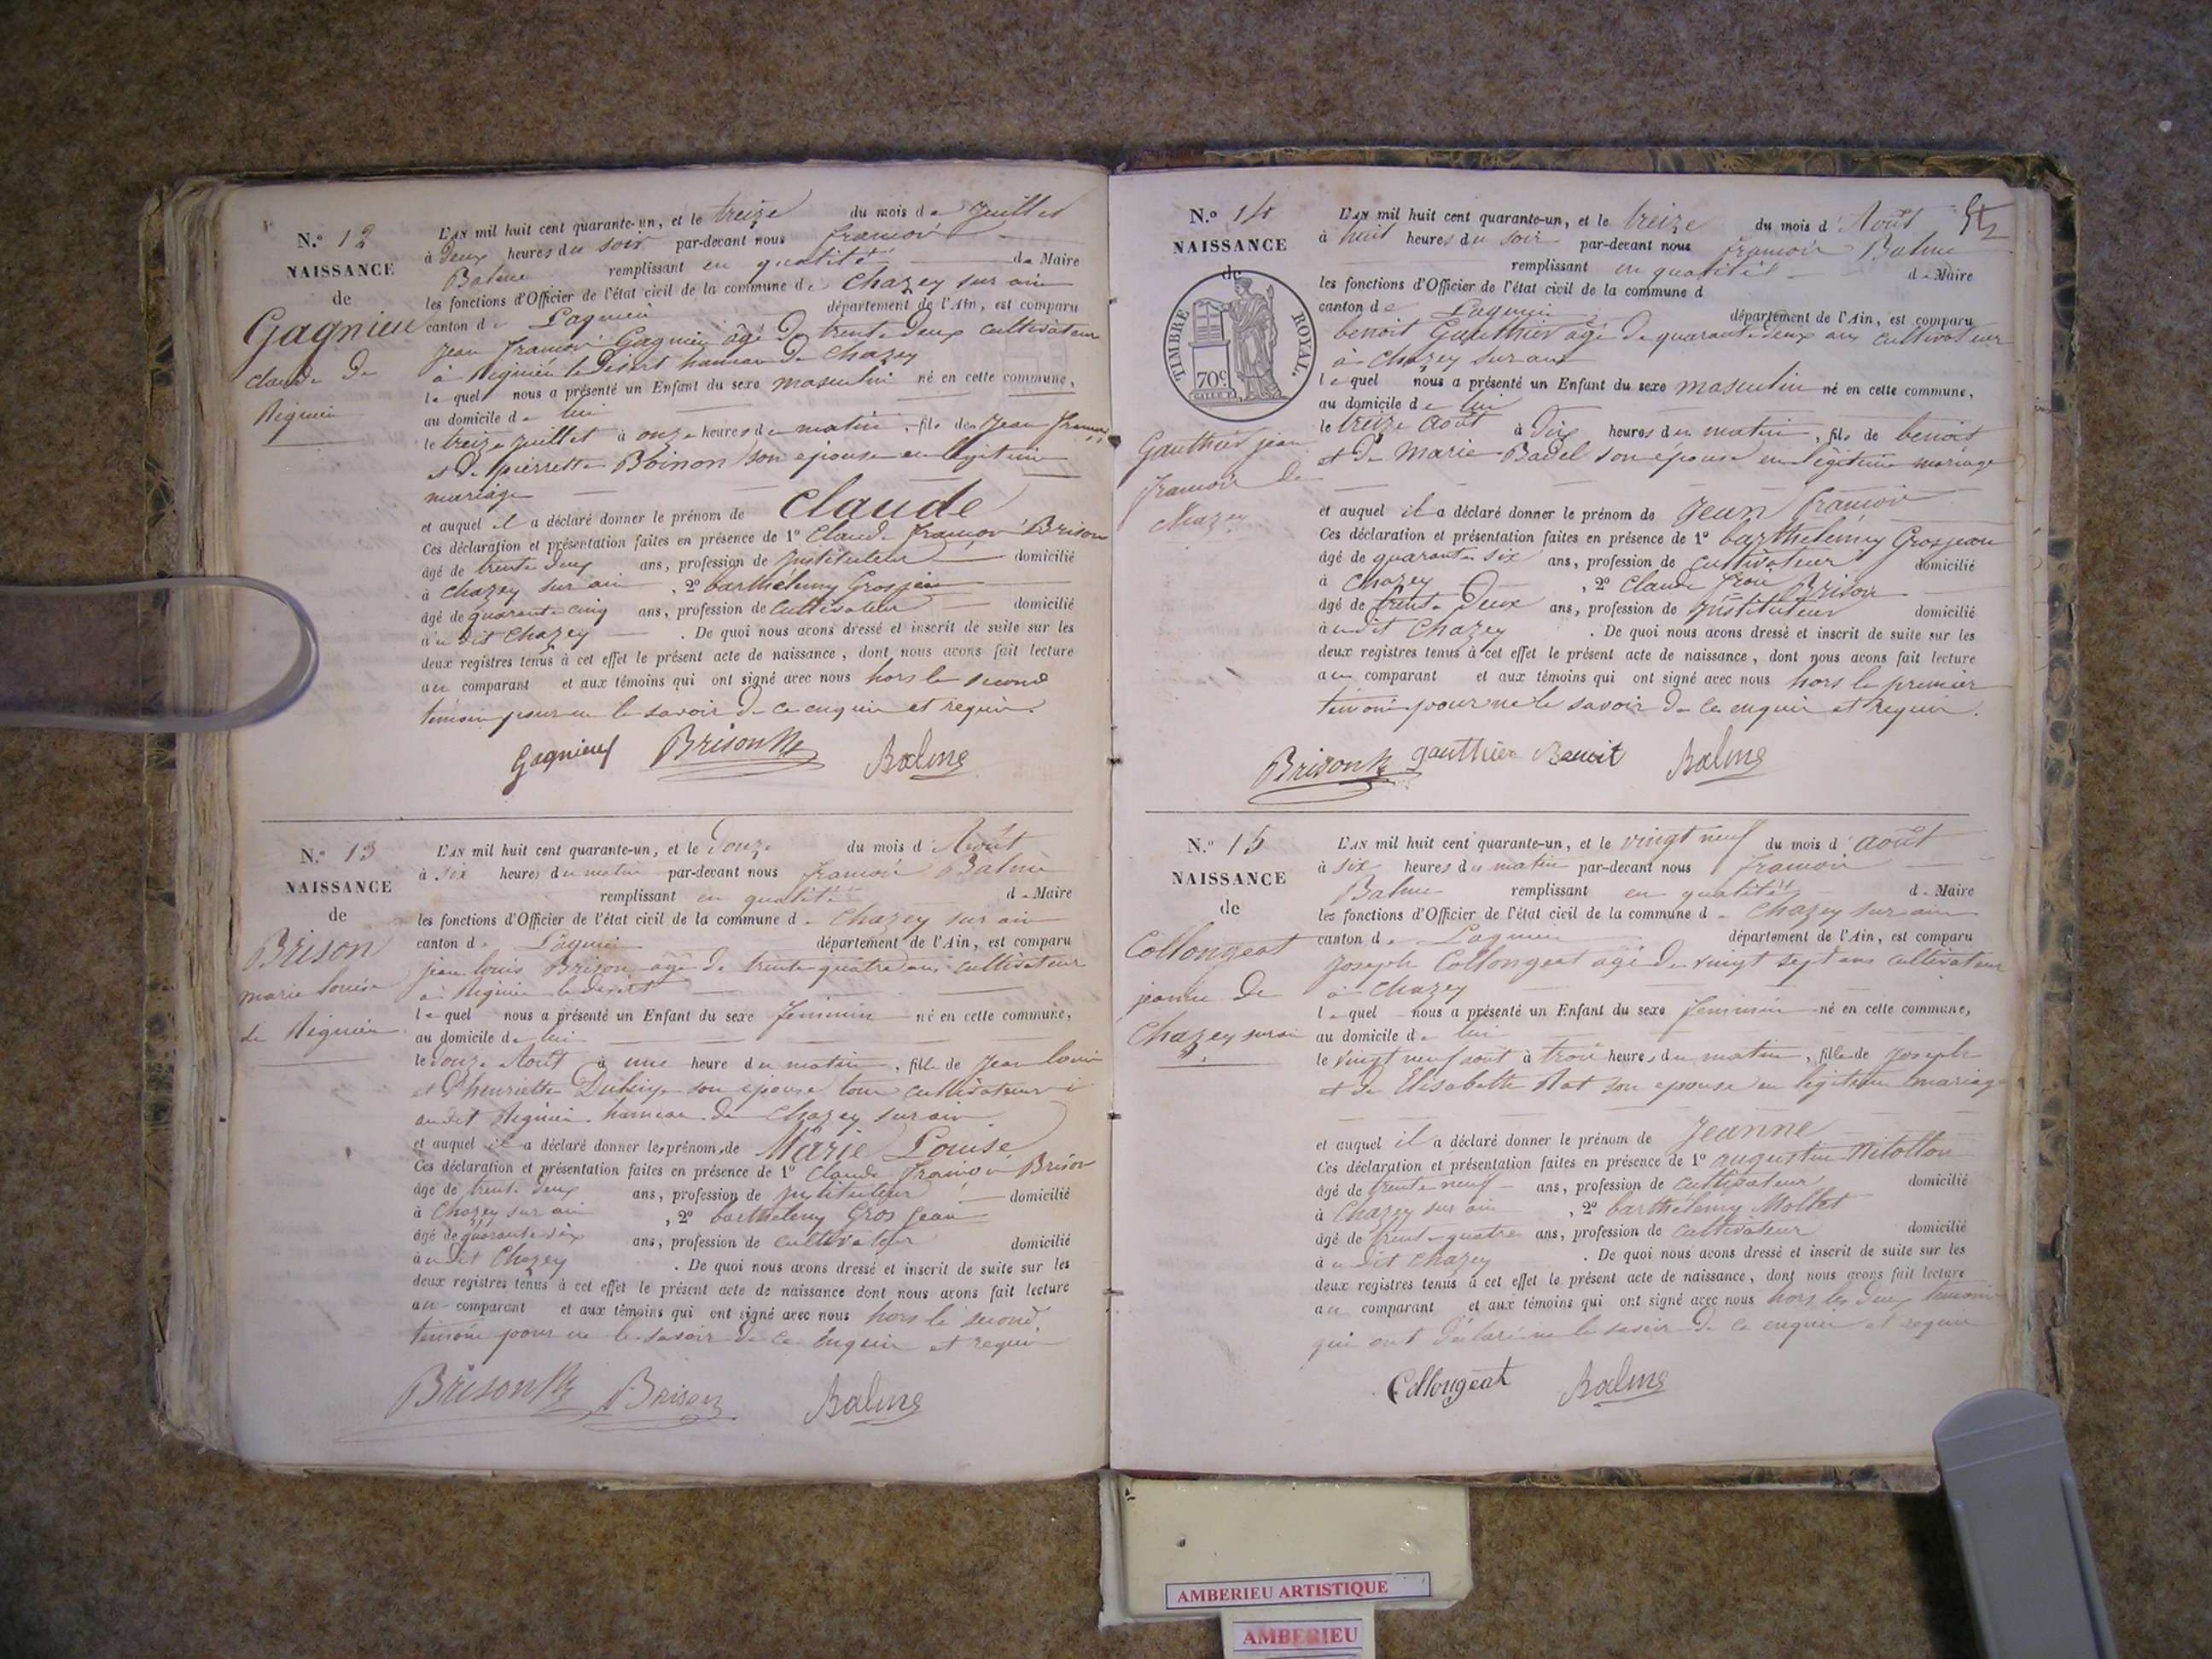 N.º 12
NAISSANCE
de
Gagnieu
claude de
Rignieu
L'AN mil huit cent quarante-un, et le treize du mois de Juillet
à deux heures du soir par-devant nous françois
Balme remplissant en qualité de Maire
les fonctions d'Officier de l'état civil de la commune de Chazey sur ain
canton de Lagnieu département de l'Ain, est comparu
jean françois Gagnieu âgé de trente deux cultivateur
à Rignieu le désert hameau de Chazey
lequel nous a présenté un Enfant du sexe masculin né en cette commune,
au domicile de lui
le treize juillet à onze heures du matin, fils de Jean françois
et de pierrette Boinon son épouse en légitime
mariage
et auquel il a déclaré donner le prénom de Claude
Ces déclaration et présentation faites en présence de 1º Claude françois Brison
âgé de trente deux ans, profession de instituteur domicilié
à Chazey sur ain, 2º barthélemy Grosjean
âgé de quarante cinq ans, profession de Cultivateur domicilié
à udit Chazey. De quoi nous avons dressé et inscrit de suite sur les
deux registres tenus à cet effet le présent acte de naissance, dont nous avons fait lecture
au comparant et aux témoins qui ont signé avec nous hors le second
témoin pour ne le savoir de ce enquis et requis.
Gagnieu Brison Balme
N.º 13
NAISSANCE
de
Brison
marie louise
de Rignieu
L'AN mil huit cent quarante-un, et le douze du mois d'Août
à six heures du matin par-devant nous françois Balme
remplissant en qualité de Maire
les fonctions d'Officier de l'état civil de la commune de Chazey sur ain
canton de Lagnieu département de l'Ain, est comparu
jean louis Brison âgé de trente quatre ans cultivateur
à Rignieu le désert
lequel nous a présenté un Enfant du sexe féminin né en cette commune,
au domicile de lui
le douze Août à une heure du matin, fille de Jean louis
et d'henriette son épouse tous cultivateurs
audit Rignieu hameau de Chazey sur ain
et auquel il a déclaré donner les prénoms de Marie Louise
Ces déclaration et présentation faites en présence de 1º Claude françois Brison
âgé de trente deux ans, profession de instituteur domicilié
à Chazey sur ain, 2º barthelemy Gros jean
âgé de quarante six ans, profession de cultivateur domicilié
à udit Chazey. De quoi nous avons dressé et inscrit de suite sur les
deux registres tenus à cet effet le présent acte de naissance dont nous avons fait lecture
au comparant et aux témoins qui ont signé avec nous hors le second
témoin pour ne le savoir de ce enquis et requis
Brison Brison Balme
N.º 14
NAISSANCE
de
TIMBRE ROYAL.
70c
Gauthier jean
françois de
Chazey
L'AN mil huit cent quarante-un, et le treize du mois d'Août
à huit heures du soir par-devant nous françois Balme
remplissant en qualité de Maire
les fonctions d'Officier de l'état civil de la commune d
canton de Lagnieu département de l'Ain, est comparu
benoit Gauthier âgé de quarante deux ans cultivateur
à Chazey sur ain
lequel nous a présenté un Enfant du sexe masculin né en cette commune,
au domicile de lui
le treize Août à dix heures du matin, fils de benoit
et de Marie Badel son épouse en légitime mariage
et auquel il a déclaré donner le prénom de Jean françois
Ces déclaration et présentation faites en présence de 1º barthelémy Grosjean
âgé de quarante six ans, profession de cultivateur domicilié
à Chazey, 2º Claude Brison
âgé de trente deux ans, profession de instituteur domicilié
à udit Chazey. De quoi nous avons dressé et inscrit de suite sur les
deux registres tenus à cet effet le présent acte de naissance, dont nous avons fait lecture
au comparant et aux témoins qui ont signé avec nous hors le premier
témoin pour ne le savoir de ce enquis et requis.
Brison gauthier Benoit Balme
N.º 15
NAISSANCE
de
Collongeat
jeanne de
Chazey sur ain
L'AN mil huit cent quarante-un, et le vingt neuf du mois d'août
à six heures du matin par-devant nous françois
Balme remplissant en qualité de Maire
les fonctions d'Officier de l'état civil de la commune de Chazey sur ain
canton de Lagnieu département de l'Ain, est comparu
Joseph Collongeat âgé de vingt sept ans cultivateur
à Chazey
lequel nous a présenté un Enfant du sexe féminin né en cette commune,
au domicile de lui
le vingt neuf août à trois heures du matin, fille de Joseph
et de Elisabeth Rat son épouse en légitime mariage
et auquel il a déclaré donner le prénom de Jeanne
Ces déclaration et présentation faites en présence de 1º augustin
âgé de trente neuf ans, profession de cultivateur domicilié
à Chazey sur ain, 2º barthélemy Mollet
âgé de trente quatre ans, profession de cultivateur domicilié
à udit Chazey. De quoi nous avons dressé et inscrit de suite sur les
deux registres tenus à cet effet le présent acte de naissance, dont nous avons fait lecture
au comparant et aux témoins qui ont signé avec nous hors les deux témoins
qui ont déclaré ne le savoir de ce enquis et requis
Collongeat Balme
AMBERIEU ARTISTIQUE
AMBERIEU